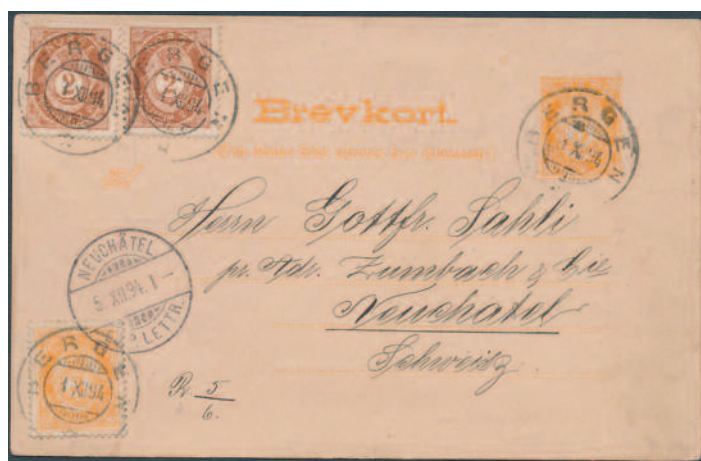 BERGEN
1 XII 94
BERGEN
1 XII 94
Brevkort.
BERGEN
1 XII 94
Herrn Gottfr. Sahli
pr. Adr. Zumbach & Cie
Neuchatel
Schweiz
NEUCHÂTEL
5 XII.94. 1 –
LETTR.
BERGEN
1 XII 94
R. 5
6.